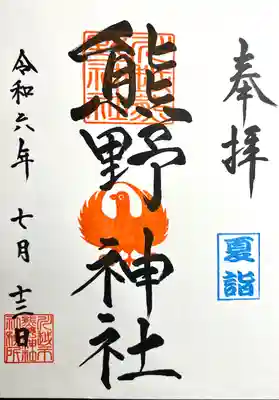 奉拝
夏詣
熊野神社
令和六年 七月 十三日